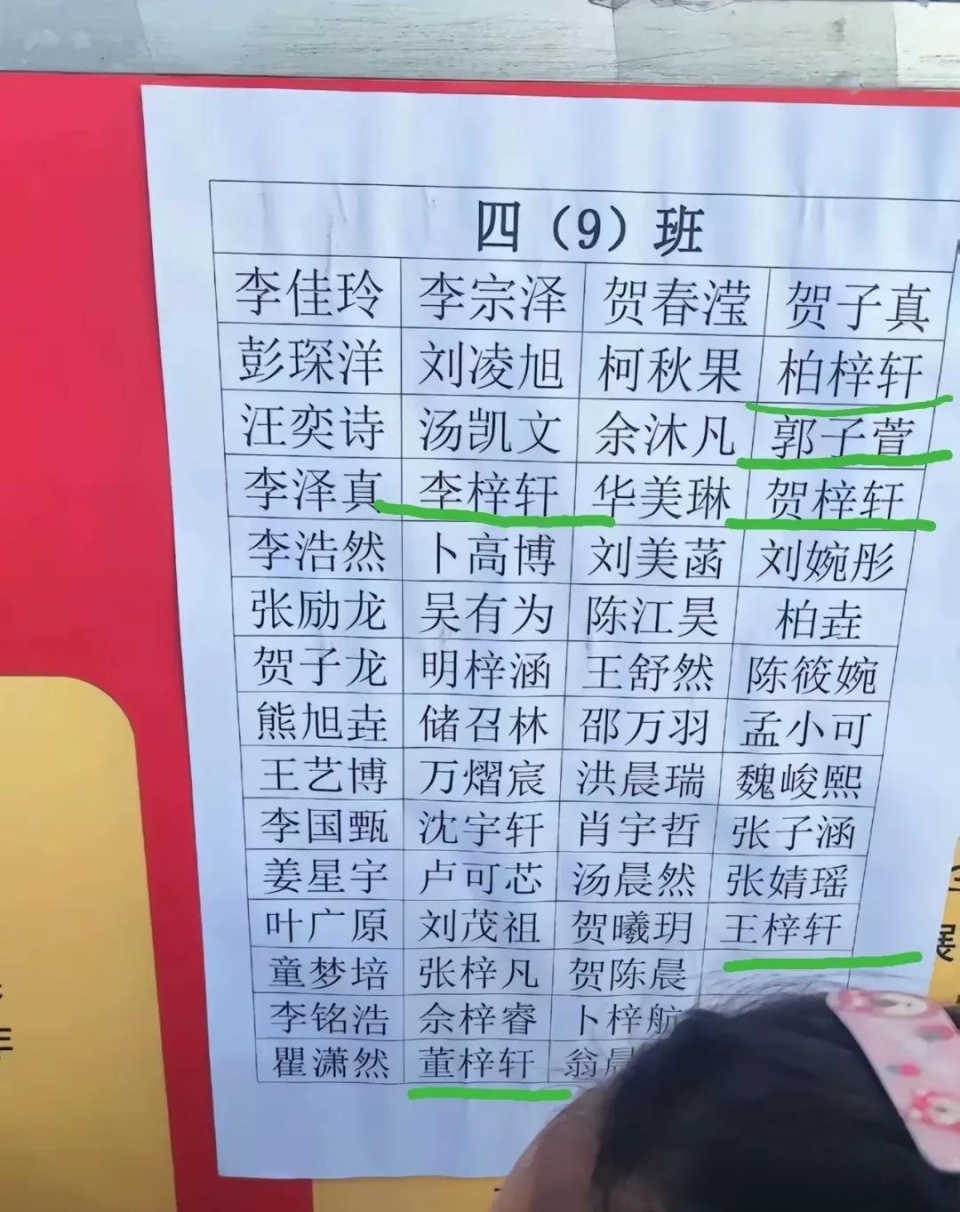 四（9）班
李佳玲 李宗泽 贺春滢 贺子真
彭琛洋 刘凌旭 柯秋果 柏梓轩
汪奕诗 汤凯文 余沐凡 郭子萱
李泽真 李梓轩 华美琳 贺梓轩
李浩然 卜高博 刘美菡 刘婉彤
张励龙 吴有为 陈江昊 柏垚
贺子龙 明梓涵 王舒然 陈筱婉
熊旭垚 储召林 邵万羽 孟小可
王艺博 万熠宸 洪晨瑞 魏峻熙
李国甄 沈宇轩 肖宇哲 张子涵
姜星宇 卢可芯 汤晨然 张婧瑶
叶广原 刘茂祖 贺曦玥 王梓轩
童梦培 张梓凡 贺陈晨
李铭浩 余梓睿 卜梓航
瞿潇然 董梓轩 翁晨
展